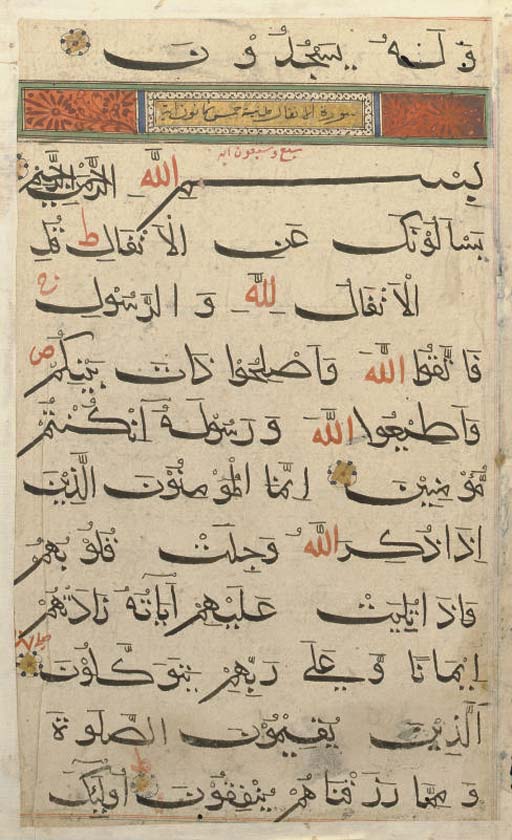 وَلَهُ يَسْجُدُونَ
سورة الانفال مدنية
سبع وسبعون اية
بِسْمِ اللّٰهِ الرَّحْمٰنِ الرَّحِيْمِ
يَسْاَلُوْنَكَ عَنِ الْاَنْفَالِ ط قُلِ
الْاَنْفَالُ لِلّٰهِ وَالرَّسُوْلِ ج
فَاتَّقُوا اللّٰهَ وَاَصْلِحُوْا ذَاتَ بَيْنِكُمْ ص
وَاَطِيْعُوا اللّٰهَ وَرَسُوْلَهُ اِنْ كُنْتُمْ
مُؤْمِنِيْنَ اِنَّمَا الْمُؤْمِنُوْنَ الَّذِيْنَ
اِذَا ذُكِرَ اللّٰهُ وَجِلَتْ قُلُوْبُهُمْ
وَاِذَا تُلِيَتْ عَلَيْهِمْ اٰيَاتُهُ زَادَتْهُمْ
اِيْمَانًا وَّعَلٰى رَبِّهِمْ يَتَوَكَّلُوْنَ
اَلَّذِيْنَ يُقِيْمُوْنَ الصَّلٰوةَ
وَمِمَّا رَزَقْنَاهُمْ يُنْفِقُوْنَ ط اُولٰئِكَ